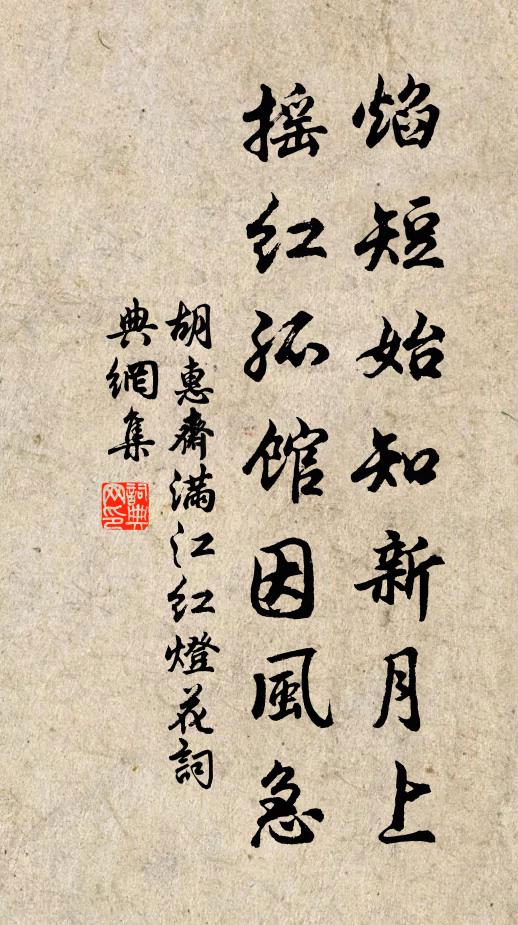 焰短始知新月上
摇紅孤館因風急
胡惠齋滿江紅燈花詞
典網集
詞典網印